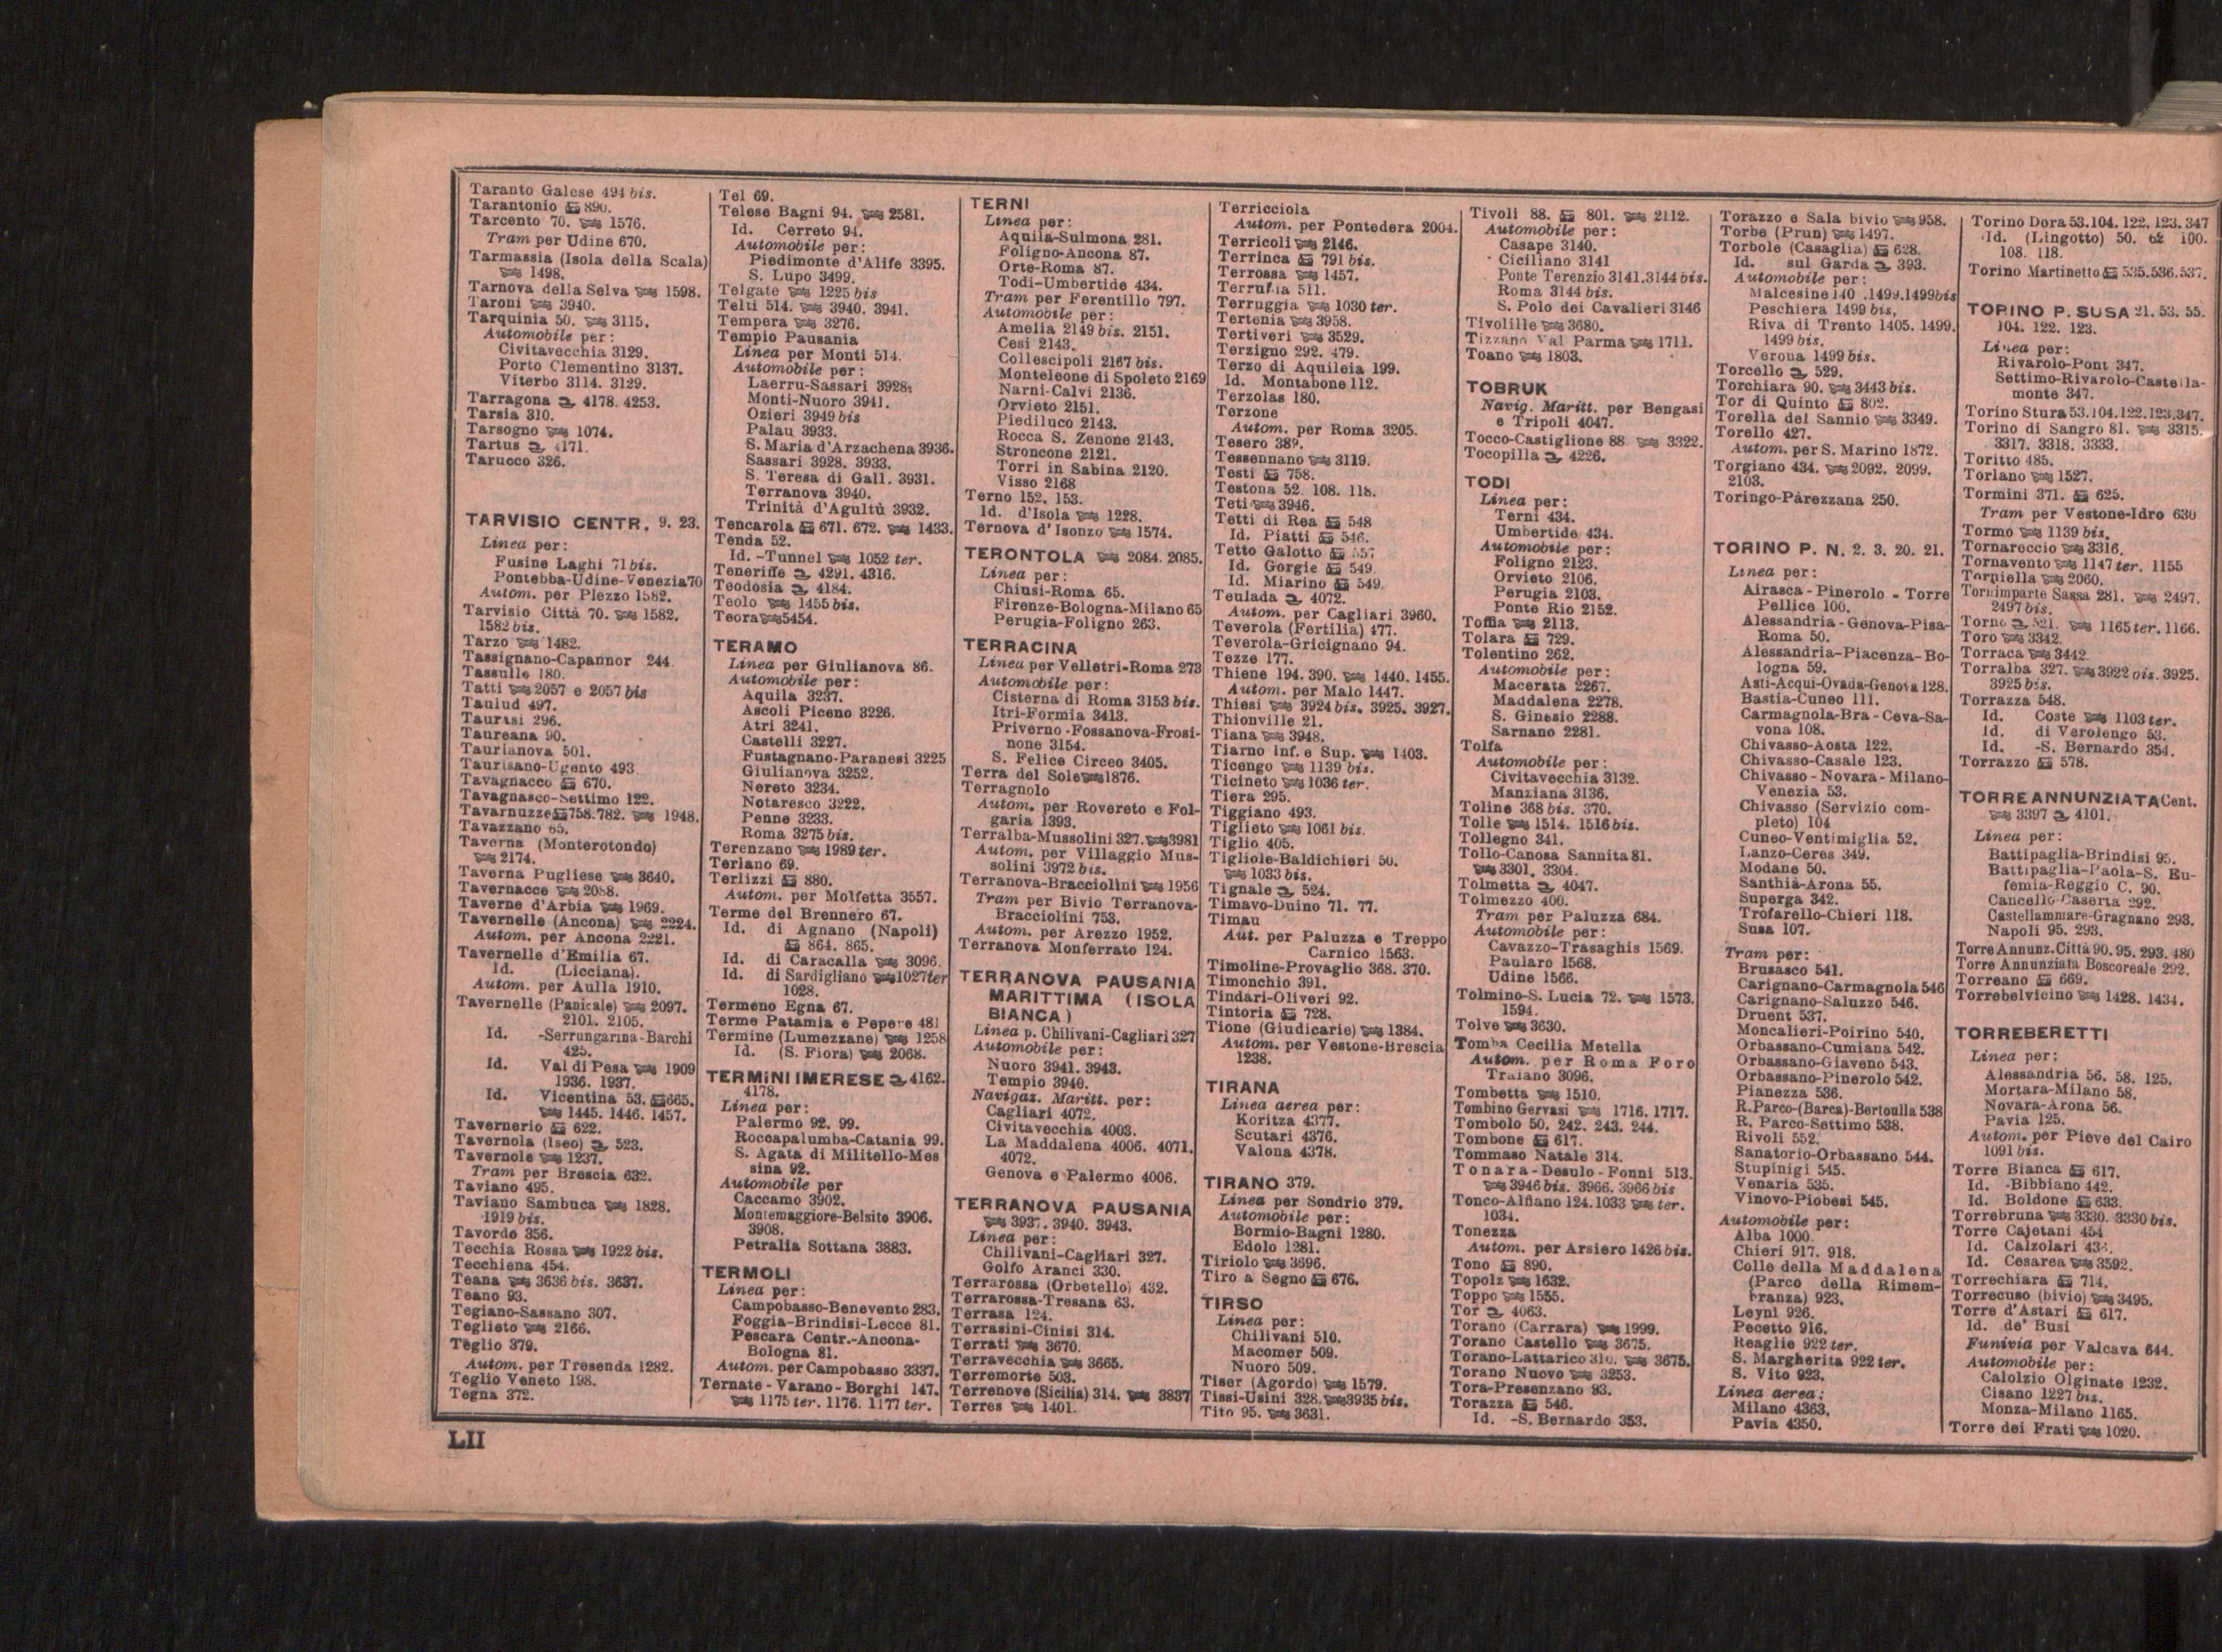 Taranto Galese 494 bis.
Tarantonio 890.
Tarcento 70. 1576.
Tram per Udine 670.
Tarmassia (Isola della Scala)
1498.
Tarnova della Selva 1598.
Taroni 3940.
Tarquinia 50. 3115.
Automobile per:
Civitavecchia 3129.
Porto Clementino 3137.
Viterbo 3114. 3129.
Tarragona 4178. 4253.
Tarsia 310.
Tarsogno 1074.
Tartus 4171.
Tarucco 326.
TARVISIO CENTR. 9. 23.
Linea per:
Fusine Laghi 71 bis.
Pontebba-Udine-Venezia 70
Autom. per Plezzo 1582.
Tarvisio Città 70. 1582.
1582 bis.
Tarzo 1482.
Tassignano-Capannor 244.
Tassullo 180.
Tatti 2057 e 2057 bis
Taulud 497.
Taurasi 296.
Taureana 90.
Taurianova 501.
Taurisano-Ugento 493
Tavagnacco 670.
Tavagnasco-Settimo 122.
Tavarnuzze 758.782. 1948.
Tavazzano 65.
Taverna (Monterotondo)
2174.
Taverna Pugliese 3640.
Tavernacce 2088.
Taverne d'Arbia 1969.
Tavernelle (Ancona) 2224.
Autom. per Ancona 2221.
Tavernelle d'Emilia 67.
Id. (Licciana).
Autom. per Aulla 1910.
Tavernelle (Panicale) 2097.
2101. 2105.
Id. -Serrungarina-Barchi
425.
Id. Val di Pesa 1909
1936. 1937.
Id. Vicentina 53. 665.
1445. 1446. 1457.
Tavernerio 622.
Tavernola (Iseo) 523.
Tavernole 1237.
Tram per Brescia 632.
Taviano 495.
Taviano Sambuca 1828.
1919 bis.
Tavordo 356.
Tecchia Rossa 1922 bis.
Tecchiena 454.
Teana 3636 bis. 3637.
Teano 93.
Tegiano-Sassano 307.
Teglieto 2166.
Teglio 379.
Autom. per Tresenda 1282.
Teglio Veneto 198.
Tegna 372.
Tel 69.
Telese Bagni 94. 2581.
Id. Cerreto 94.
Automobile per:
Piedimonte d'Alife 3395.
S. Lupo 3499.
Telgate 1225 bis
Telti 514. 3940. 3941.
Tempera 3276.
Tempio Pausania
Linea per Monti 514.
Automobile per:
Laerru-Sassari 3928.
Monti-Nuoro 3941.
Ozieri 3949 bis
Palau 3933.
S. Maria d'Arzachena 3936.
Sassari 3928. 3933.
S. Teresa di Gall. 3931.
Terranova 3940.
Trinità d'Agultù 3932.
Tencarola 671. 672. 1433.
Tenda 52.
Id. -Tunnel 1052 ter.
Teneriffe 4291. 4316.
Teodosia 4184.
Teolo 1455 bis.
Teora 5454.
TERAMO
Linea per Giulianova 86.
Automobile per:
Aquila 3237.
Ascoli Piceno 3226.
Atri 3241.
Castelli 3227.
Fustagnano-Paranesi 3225
Giulianova 3252.
Nereto 3234.
Notaresco 3222.
Penne 3233.
Roma 3275 bis.
Terenzano 1989 ter.
Terlano 69.
Terlizzi 880.
Autom. per Molfetta 3557.
Terme del Brennero 67.
Id. di Agnano (Napoli)
864. 865.
Id. di Caracalla 3096.
Id. di Sardigliano 1027 ter
1028.
Termeno Egna 67.
Terme Patamia e Pepere 481
Termine (Lumezzane) 1258
Id. (S. Fiora) 2068.
TERMINI IMERESE 4162.
4178.
Linea per:
Palermo 92. 99.
Roccapalumba-Catania 99.
S. Agata di Militello-Mes
sina 92.
Automobile per
Caccamo 3902.
Montemaggiore-Belsito 3906.
3908.
Petralia Sottana 3883.
TERMOLI
Linea per:
Campobasso-Benevento 283.
Foggia-Brindisi-Lecce 81.
Pescara Centr.-Ancona-
Bologna 81.
Autom. per Campobasso 3337.
Ternate-Varano-Borghi 147.
1175 ter. 1176. 1177 ter.
TERNI
Linea per:
Aquila-Sulmona 281.
Foligno-Ancona 87.
Orte-Roma 87.
Todi-Umbertide 434.
Tram per Ferentillo 797.
Automobile per:
Amelia 2149 bis. 2151.
Cesi 2143.
Collescipoli 2167 bis.
Monteleone di Spoleto 2169
Narni-Calvi 2136.
Orvieto 2151.
Piediluco 2143.
Rocca S. Zenone 2143.
Stroncone 2121.
Torri in Sabina 2120.
Visso 2168
Terno 152. 153.
Id. d'Isola 1228.
Ternova d'Isonzo 1574.
TERONTOLA 2084. 2085.
Linea per:
Chiusi-Roma 65.
Firenze-Bologna-Milano 65
Perugia-Foligno 263.
TERRACINA
Linea per Velletri-Roma 273
Automobile per:
Cisterna di Roma 3153 bis.
Itri-Formia 3413.
Priverno-Fossanova-Frosi-
none 3154.
S. Felice Circeo 3405.
Terra del Sole 1876.
Terragnolo
Autom. per Rovereto e Fol-
garia 1393.
Terralba-Mussolini 327. 3981
Autom. per Villaggio Mus-
solini 3972 bis.
Terranova-Bracciolini 1956
Tram per Bivio Terranova-
Bracciolini 753.
Autom. per Arezzo 1952.
Terranova Monferrato 124.
TERRANOVA PAUSANIA
MARITTIMA (ISOLA
BIANCA)
Linea p. Chilivani-Cagliari 327
Automobile per:
Nuoro 3941. 3943.
Tempio 3940.
Navigaz. Maritt. per:
Cagliari 4072.
Civitavecchia 4003.
La Maddalena 4006. 4071.
4072.
Genova e Palermo 4006.
TERRANOVA PAUSANIA
3937. 3940. 3943.
Linea per:
Chilivani-Cagliari 327.
Golfo Aranci 330.
Terrarossa (Orbetello) 432.
Terrarossa-Tresana 63.
Terrasa 124.
Terrasini-Cinisi 314.
Terrati 3670.
Terravecchia 3665.
Terremorte 503.
Terrenove (Sicilia) 314. 3837
Terres 1401.
Terricciola
Autom. per Pontedera 2004.
Terricoli 2146.
Terrinca 791 bis.
Terrossa 1457.
511.
Terruggia 1030 ter.
Tertenia 3958.
Tertiveri 3529.
Terzigno 292. 479.
Terzo di Aquileia 199.
Id. Montabone 112.
Terzolas 180.
Terzone
Autom. per Roma 3205.
Tesero 389.
Tessennano 3119.
Testi 758.
Testona 52. 108. 118.
Teti 3946.
Tetti di Rea 548
Id. Piatti 546.
Tetto Galotto 557
Id. Gorgie 549.
Id. Miarino 549.
Teulada 4072.
Autom. per Cagliari 3960.
Teverola (Fertilia) 477.
Teverola-Gricignano 94.
Tezze 177.
Thiene 194. 390. 1440. 1455.
Autom. per Malo 1447.
Thiesi 3924 bis. 3925. 3927.
Thionville 21.
Tiana 3948.
Tiarno Inf. e Sup. 1403.
Ticengo 1139 bis.
Ticineto 1036 ter.
Tiera 295.
Tiggiano 493.
Tiglieto 1061 bis.
Tiglio 405.
Tigliole-Baldichieri 50.
1033 bis.
Tignale 524.
Timavo-Duino 71. 77.
Timau
Aut. per Paluzza e Treppo
Carnico 1563.
Timoline-Provaglio 368. 370.
Timonchio 391.
Tindari-Oliveri 92.
Tintoria 728.
Tione (Giudicarie) 1384.
Autom. per Vestone-Brescia
1238.
TIRANA
Linea aerea per:
Koritza 4377.
Scutari 4376.
Valona 4378.
TIRANO 379.
Linea per Sondrio 379.
Automobile per:
Bormio-Bagni 1280.
Edolo 1281.
Tiriolo 3696.
Tiro a Segno 676.
TIRSO
Linea per:
Chilivani 510.
Macomer 509.
Nuoro 509.
Tiser (Agordo) 1579.
Tissi-Usini 328. 3935 bis.
Tito 95. 3631.
Tivoli 88. 801. 2112.
Automobile per:
Casape 3140.
Ciciliano 3141
Ponte Terenzio 3141.3144 bis.
Roma 3144 bis.
S. Polo dei Cavalieri 3146
Tivolille 3680.
Tizzano Val Parma 1711.
Toano 1803.
TOBRUK
Navig. Maritt. per Bengasi
e Tripoli 4047.
Tocco-Castiglione 88 3322.
Tocopilla 4226.
TODI
Linea per:
Terni 434.
Umbertide 434.
Automobile per:
Foligno 2123.
Orvieto 2106.
Perugia 2103.
Ponte Rio 2152.
Toffia 2113.
Tolara 729.
Tolentino 262.
Automobile per:
Macerata 2267.
Maddalena 2278.
S. Ginesio 2288.
Sarnano 2281.
Tolfa
Automobile per:
Civitavecchia 3132.
Manziana 3136.
Toline 368 bis. 370.
Tolle 1514. 1516 bis.
Tollegno 341.
Tollo-Canosa Sannita 81.
3301. 3304.
Tolmetta 4047.
Tolmezzo 400.
Tram per Paluzza 684.
Automobile per:
Cavazzo-Trasaghis 1569.
Paularo 1568.
Udine 1566.
Tolmino-S. Lucia 72. 1573.
1594.
Tolve 3630.
Tomba Cecilia Metella
Autom. per Roma Foro
Traiano 3096.
Tombetta 1510.
Tombino Gervasi 1716. 1717.
Tombolo 50. 242. 243. 244.
Tombone 617.
Tommaso Natale 314.
Tonara-Desulo-Fonni 513.
3946 bis. 3966. 3966 bis
Tonco-Alfiano 124.1033 ter.
1034.
Tonezza
Autom. per Arsiero 1426 bis.
Tono 890.
Topolz 1632.
Toppo 1555.
Tor 4063.
Torano (Carrara) 1999.
Torano Castello 3675.
Torano-Lattarico 310. 3675.
Torano Nuovo 3253.
Tora-Presenzano 93.
Torazza 546.
Id. -S. Bernardo 353.
Torazzo e Sala bivio 958.
Torbe (Prun) 1497.
Torbole (Casaglia) 628.
Id. sul Garda 393.
Automobile per:
Malcesine 140 .1499.1499 bis
Peschiera 1499 bis.
Riva di Trento 1405. 1499.
1499 bis.
Verona 1499 bis.
Torcello 529.
Torchiara 90. 3443 bis.
Tor di Quinto 802.
Torella del Sannio 3349.
Torello 427.
Autom. per S. Marino 1872.
Torgiano 434. 2092. 2099.
2103.
Toringo-Parezzana 250.
TORINO P. N. 2. 3. 20. 21.
Linea per:
Airasca-Pinerolo-Torre
Pellice 100.
Alessandria-Genova-Pisa-
Roma 50.
Alessandria-Piacenza-Bo-
logna 59.
Asti-Acqui-Ovada-Genova 128.
Bastia-Cuneo 111.
Carmagnola-Bra-Ceva-Sa-
vona 108.
Chivasso-Aosta 122.
Chivasso-Casale 123.
Chivasso-Novara-Milano-
Venezia 53.
Chivasso (Servizio com-
pleto) 104
Cuneo-Ventimiglia 52.
Lanzo-Ceres 349.
Modane 50.
Santhià-Arona 55.
Superga 342.
Trofarello-Chieri 118.
Susa 107.
Tram per:
Brusasco 541.
Carignano-Carmagnola 546
Carignano-Saluzzo 546.
Druent 537.
Moncalieri-Poirino 540.
Orbassano-Cumiana 542.
Orbassano-Giaveno 543.
Orbassano-Pinerolo 542.
Pianezza 536.
R. Parco-(Barca)-Bertoulla 538
R. Parco-Settimo 538.
Rivoli 552.
Sanatorio-Orbassano 544.
Stupinigi 545.
Venaria 535.
Vinovo-Piobesi 545.
Automobile per:
Alba 1000.
Chieri 917. 918.
Colle della Maddalena
(Parco della Rimem-
branza) 923.
Leynì 926.
Pecetto 916.
Reaglie 922 ter.
S. Margherita 922 ter.
S. Vito 923.
Linea aerea:
Milano 4363.
Pavia 4350.
Torino Dora 53.104. 122. 123. 347
Id. (Lingotto) 50. 62 100.
108. 118.
Torino Martinetto 535.536.537.
TORINO P. SUSA 21. 53. 55.
104. 122. 123.
Linea per:
Rivarolo-Pont 347.
Settimo-Rivarolo-Castella-
monte 347.
Torino Stura 53.104.122.123.347.
Torino di Sangro 81. 3315.
3317. 3318. 3333.
Toritto 485.
Torlano 1527.
Tormini 371. 625.
Tram per Vestone-Idro 630
Tormo 1139 bis.
Tornareccio 3316.
Tornavento 1147 ter. 1155
Torniella 2060.
Tornimparte Sassa 281. 2497.
2497 bis.
Torno 521. 1165 ter. 1166.
Toro 3342.
Torraca 3442.
Torralba 327. 3922 bis. 3925.
3925 bis.
Torrazza 548.
Id. Coste 1103 ter.
Id. di Verolengo 53.
Id. -S. Bernardo 354.
Torrazzo 578.
TORRE ANNUNZIATA Cent.
3397 4101.
Linea per:
Battipaglia-Brindisi 95.
Battipaglia-Paola-S. Eu-
femia-Reggio C. 90.
Cancello-Caserta 292.
Castellammare-Gragnano 293.
Napoli 95. 293.
Torre Annunz. Città 90. 95. 293. 480
Torre Annunziata Boscoreale 292.
Torreano 669.
Torrebelvicino 1428. 1434.
TORREBERETTI
Linea per:
Alessandria 56. 58. 125.
Mortara-Milano 58.
Novara-Arona 56.
Pavia 125.
Autom. per Pieve del Cairo
1091 bis.
Torre Bianca 617.
Id. -Bibbiano 442.
Id. Boldone 633.
Torrebruna 3330. 3330 bis.
Torre Cajetani 454
Id. Calzolari
Id. Cesarea 3592.
Torrechiara 714.
Torrecuso (bivio) 3495.
Torre d'Astari 617.
Id. de' Busi
Funivia per Valcava 644.
Automobile per:
Calolzio Olginate 1232.
Cisano 1227 bis.
Monza-Milano 1165.
Torre dei Frati 1020.
LII